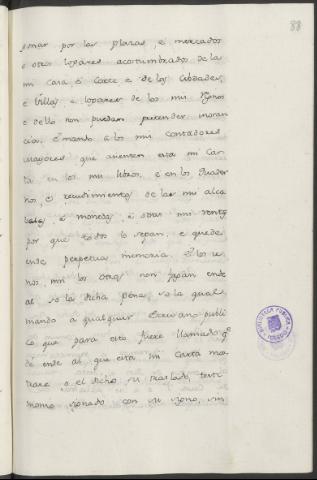 88
onar por las plazas, e mercados
e otros logares acotumbrados de la
mi Casa e Corte e de las Cibdades,
e Villas e logares de los mis Regnos
e dello non puedan pretender inoran
cia: E mando a los mis contadores
mayores que asienten esta mi Car
ta en los mis libros, e en los Quader
nos, e recudimientos de las mis alca
balas, e monedas, e otras mis rentas
por que todos lo sepan, e quede
ende perpetua memoria. E los u
nos, nin los otros non fagan ende
al so la dicha pena, so la qual
mando a qualquier Escrivano publi
co que para esto fuere llamado qe
dé ende al que esta mi Carta mos
trare o el dicho su traslado, testi
monio signado con su signo, sin
BIBLIOTECA PUBLICA
TOLEDO